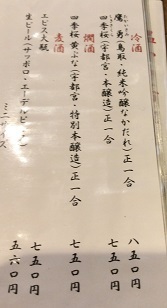 冷酒
鷹勇（鳥取・純米吟醸なかだれ）正一合　八五〇円
四季桜（宇都宮・本醸造）正一合　七五〇円
燗酒
四季桜黄ぶな（宇都宮・特別本醸造）正一合　七五〇円
麦酒
ヱビス大瓶　七五〇円
生ビール（サッポロ・エーデルピルス）　五六〇円